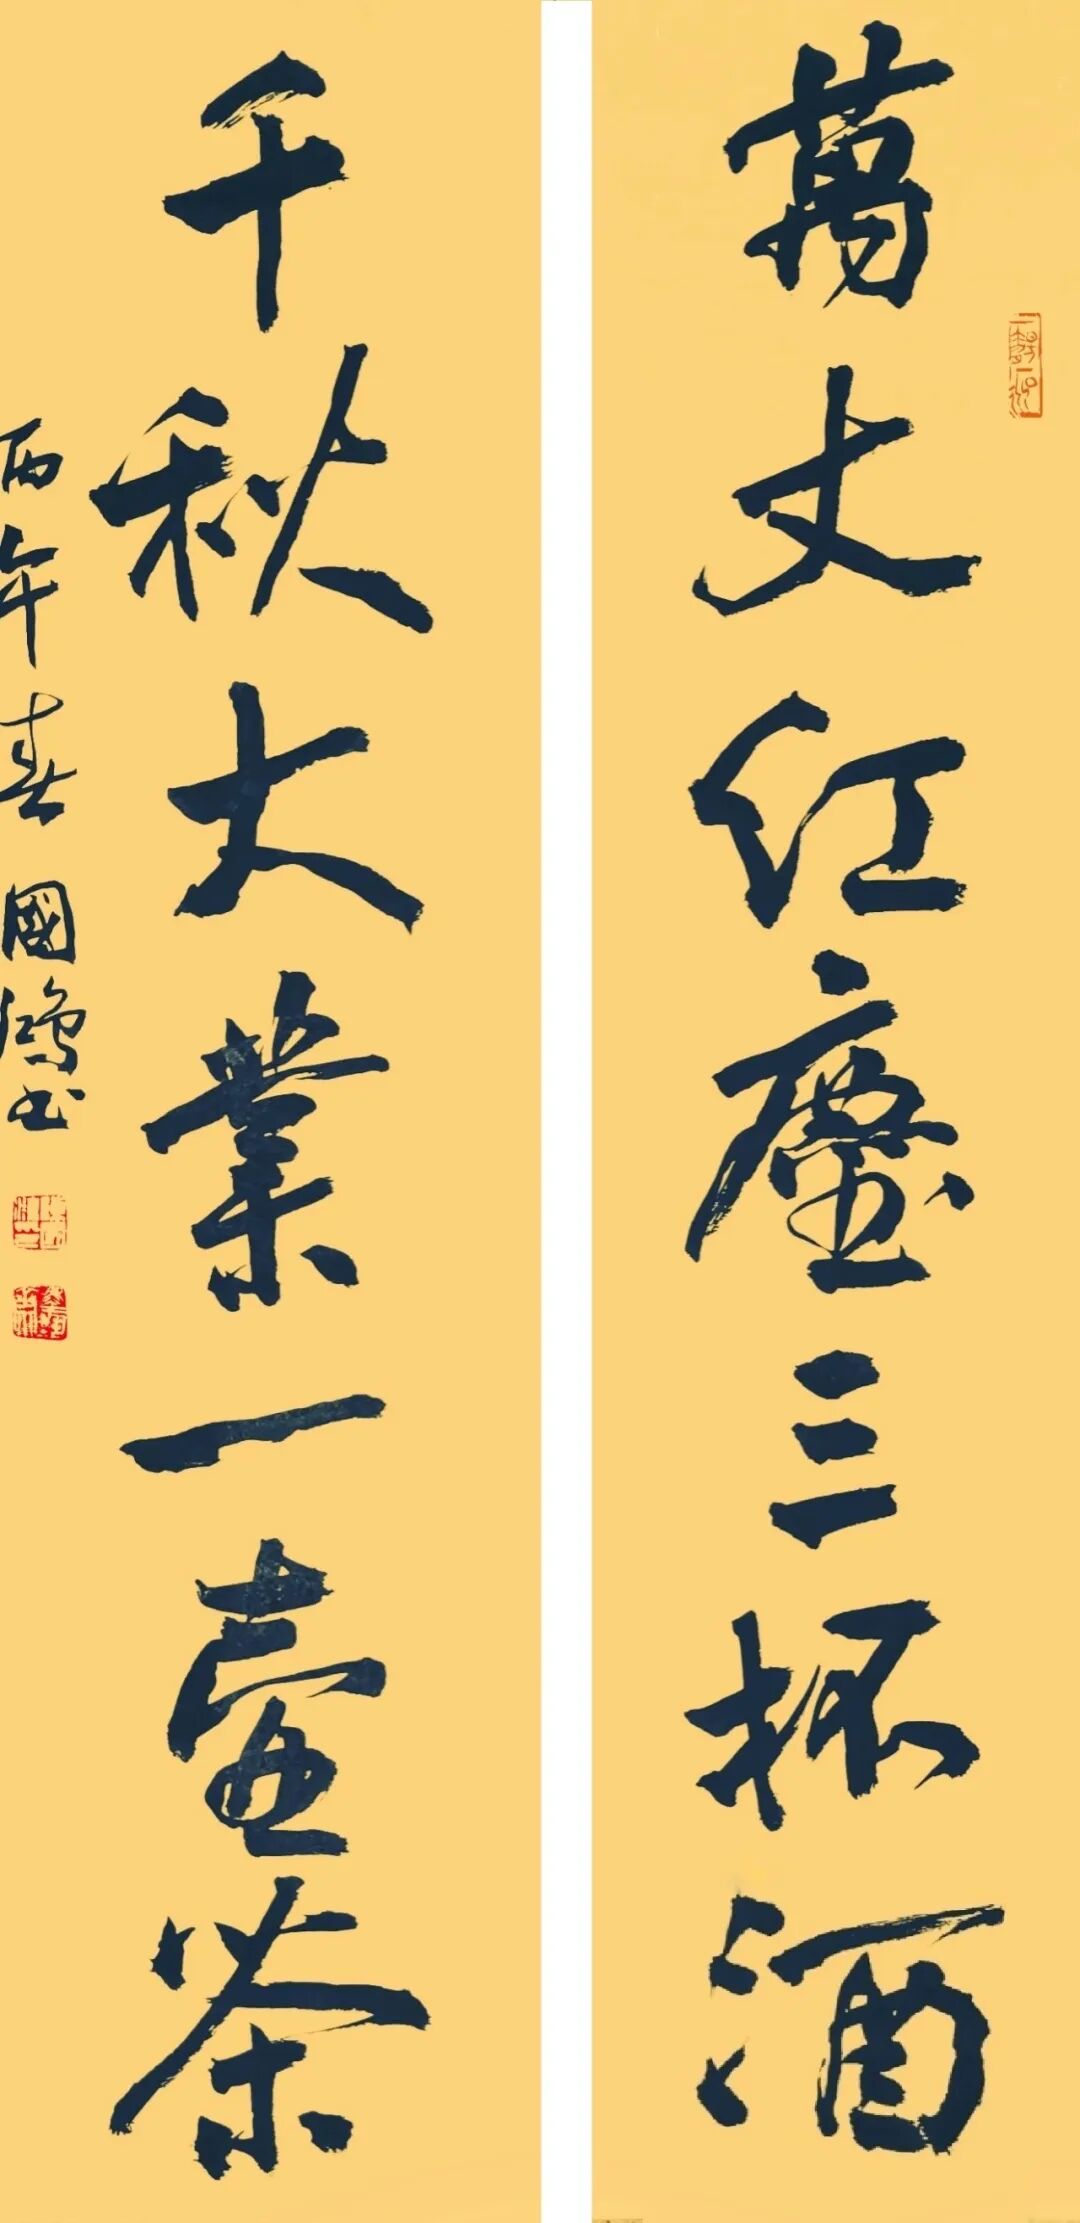 萬丈红塵三杯酒
千秋大業一壺茶
丙午春國鴻书